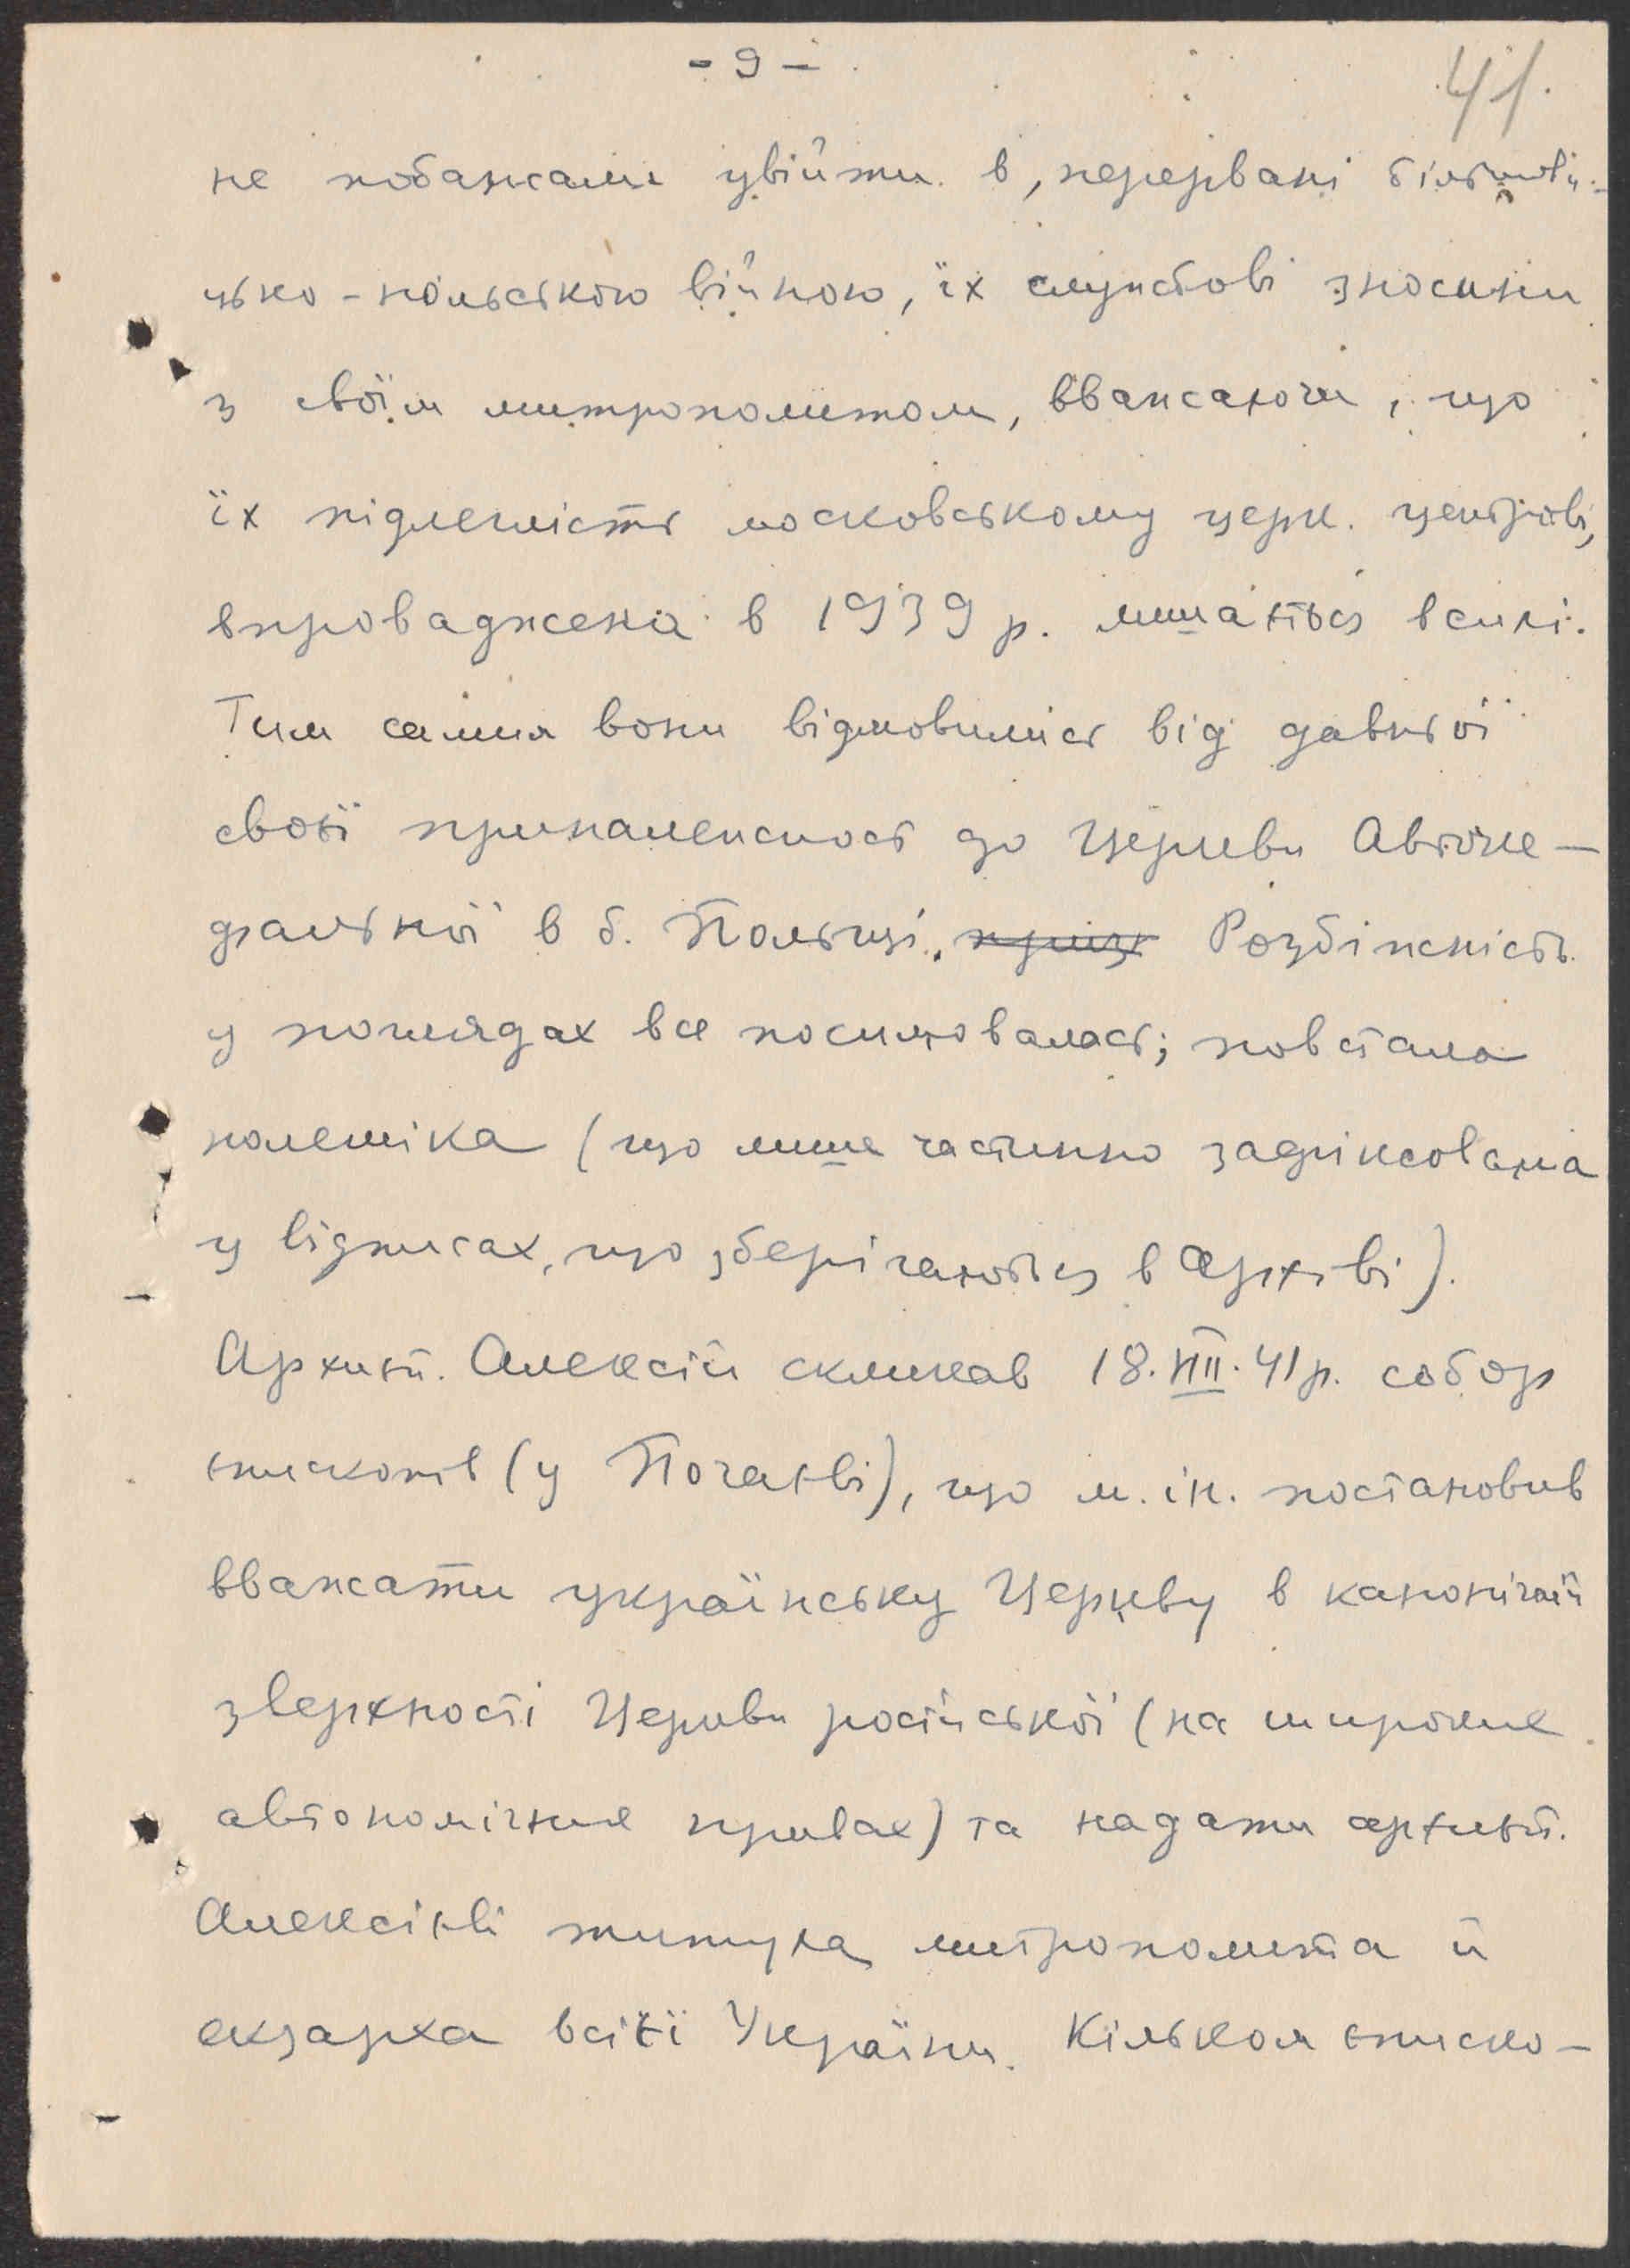 - 9 -
41.
не побажали увійти в, перервані більшови-
цько-польською війною, їх службові зносини
з своїм митрополитом, вважаючи, що
їх підлеглість московському церк. центрові,
впроваджена в 1939 р. лишається в силі.
Тим самим вони відмовились від давньої
своєї приналежности до Церкви Автоке-
фальної в б. Польщі. Розбіжність
у поглядах все посилювалась; повстала
полеміка (що лише частинно зафіксована
у відписах, що зберігаються в архіві).
Архиєп. Алексій скликав 18.VIII.41 р. собор
єпископів (у Почаєві), що м. ін. постановив
вважати українську Церкву в канонічній
зверхності Церкви російської (на широких
автономічних правах) та надати архиєп.
Алексієві титула митрополита й
екзарха всієї України. Кільком єписко-